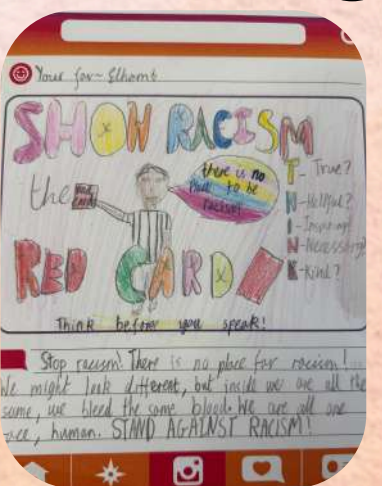 SHOW RACISM
the
RED CARD
there is no
place to be
racist!
RED CARD
T- True?
H-Helpful?
I- Inspiring?
N-Necessary?
K-Kind?
Think before you speak!
Stop racism! There is no place for racism!
We might look different, but inside we are all the
same, we bleed the same blood. We are all one
race, human. STAND AGAINST RACISM!